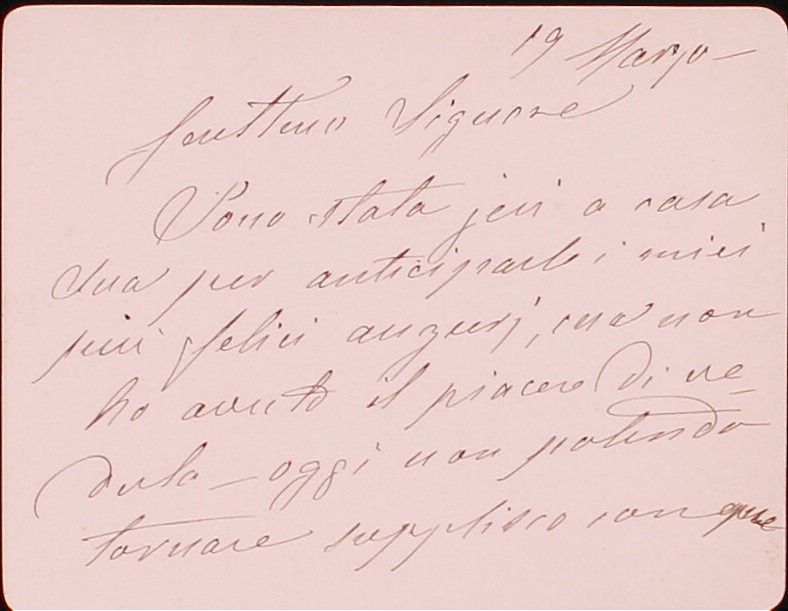 19 Marzo –
Gentilmo Signore
Sono stata jeri a casa
Sua per anticiparle i miei
più felici augurj, ma non
ho avuto il piacere di ve-
derla – oggi non potendo
tornare supplisco con que